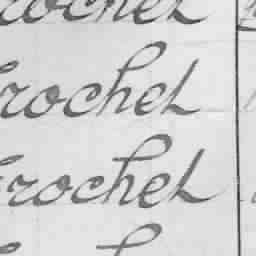 rochet
rochet
rochet